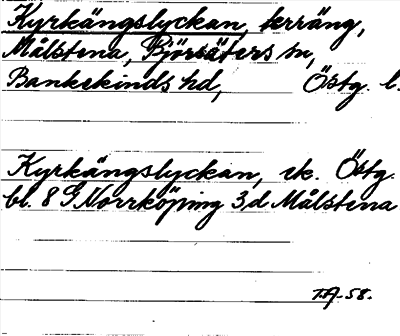 Kyrkängslyckan, terräng,
Målstena, Björsäters sn,
Bankekinds hd, Östg. l.
Kyrkängslyckan, ek. Östg.
bl. 8 G Norrköping 3d Målstena
T.A. 58.